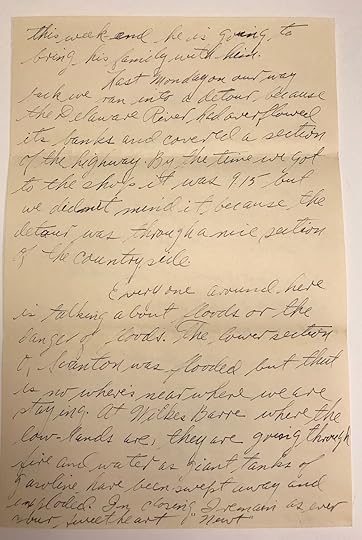 this week and he is going to
bring his family with him.
Last Monday on our way
back we ran into a detour because
the Delaware River had overflowed
its banks and covered a section
of the highway. By the time we got
to the ship it was 9.15 but
we didn't mind it, because the
detour was through a nice section
of the countryside
Everyone around here
is talking about floods or the
danger of floods. The lower section
of Scranton was flooded but that
is no where's near where we are
staying. At Wilkes Barre where the
low-lands are, they are going through
fire and water as giant tanks of
gasoline have been swept away and
exploded. In closing I remain as ever
your sweetheart "Newt"